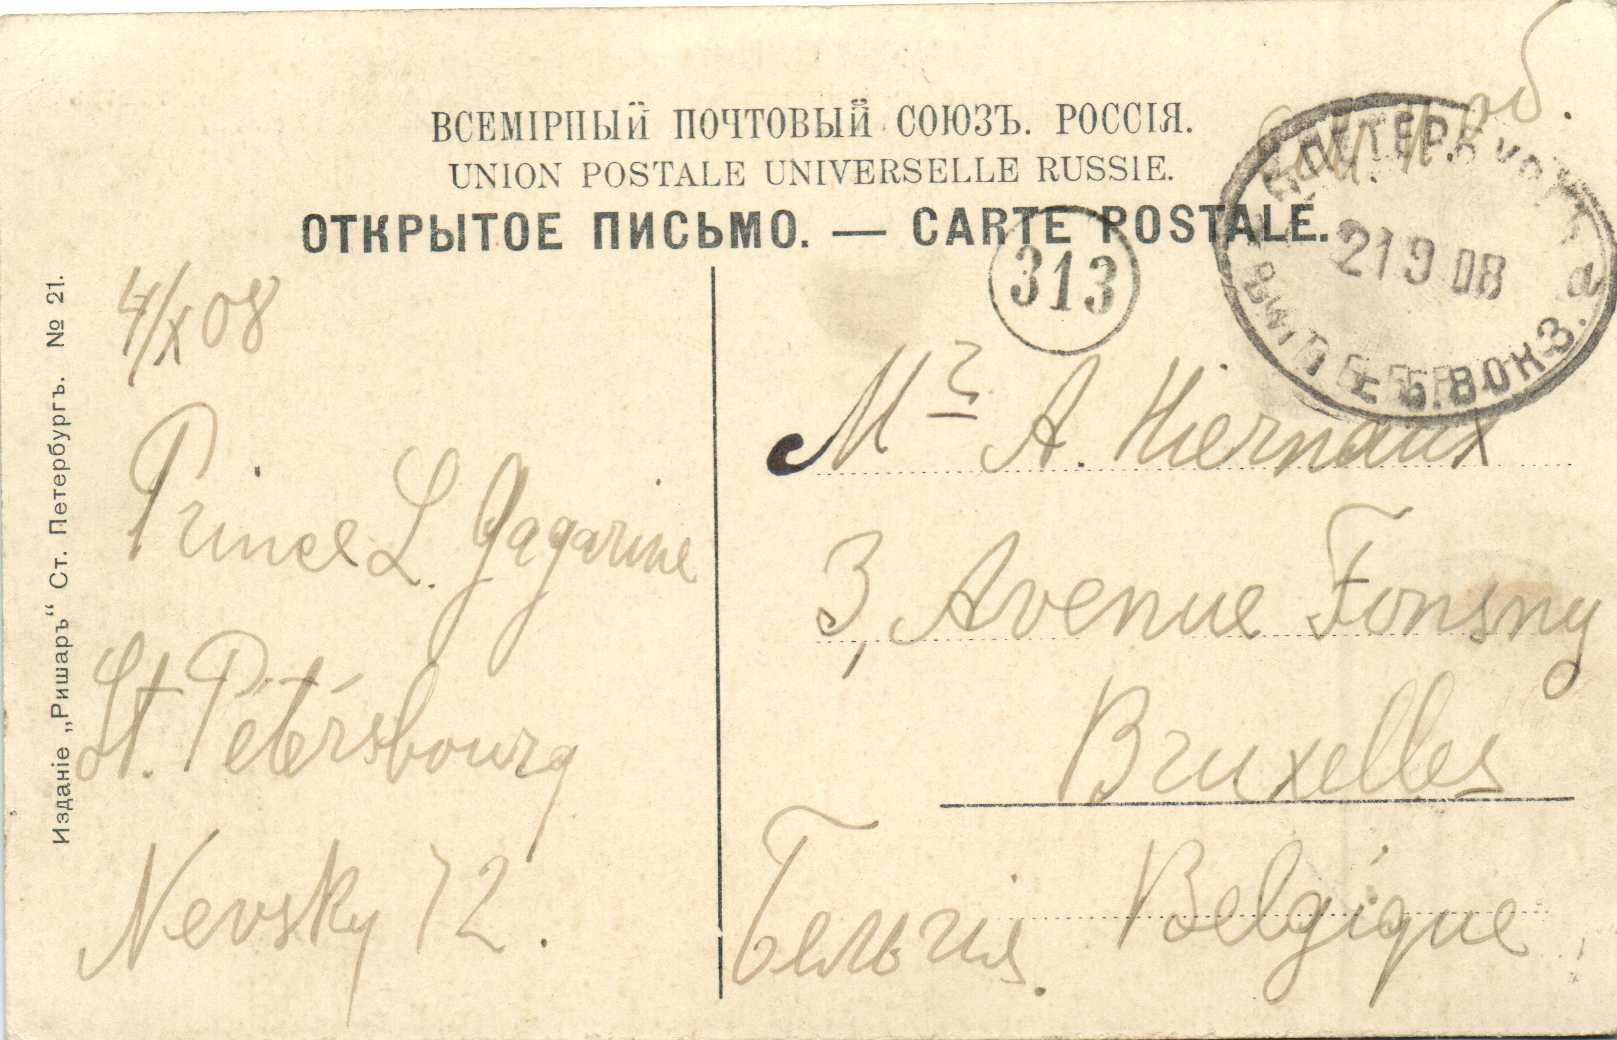 ВСЕМІРНЫЙ ПОЧТОВЫЙ СОЮЗЪ. РОССІЯ.
UNION POSTALE UNIVERSELLE RUSSIE.
ОТКРЫТОЕ ПИСЬМО. — CARTE POSTALE.
313
С.ПЕТЕРБУРГЪ
21 9 08
ВОКЗ.
Изданіе „Ришаръ“ Ст. Петербургъ. № 21.
4/X 08
Prince L. Gagarine
St. Pétérsbourg
Nevsky 72.
Mr A. Hiernaux
3, Avenue Fonsny
Bruxelles
Бельгія. Belgique